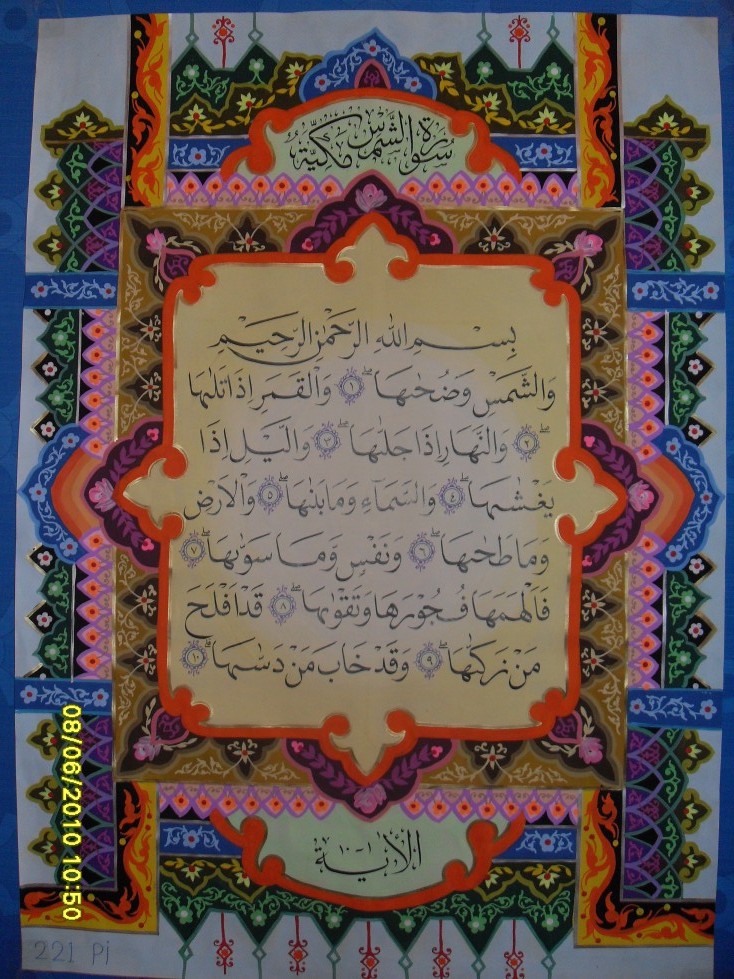 سُورَةُ وَالشَّمْسِ مَكِّيَّة
بِسْمِ اللّٰهِ الرَّحْمٰنِ الرَّحِيْمِ
وَالشَّمْسِ وَضُحٰىهَا ۖ ١ وَالْقَمَرِ اِذَا تَلٰىهَا
ۖ ٢ وَالنَّهَارِ اِذَا جَلّٰىهَا ۖ ٣ وَالَّيْلِ اِذَا
يَغْشٰىهَا ۖ ٤ وَالسَّمَآءِ وَمَا بَنٰىهَا ۖ ٥ وَالْاَرْضِ
وَمَا طَحٰىهَا ۖ ٦ وَنَفْسٍ وَمَا سَوّٰىهَا ۖ ٧
فَاَلْهَمَهَا فُجُوْرَهَا وَتَقْوٰىهَا ۖ ٨ قَدْ اَفْلَحَ
مَنْ زَكّٰىهَا ۖ ٩ وَقَدْ خَابَ مَنْ دَسّٰىهَا ۖ ١٠
الاٰية ١-١٠
08/06/2010 10:50
221 Pi